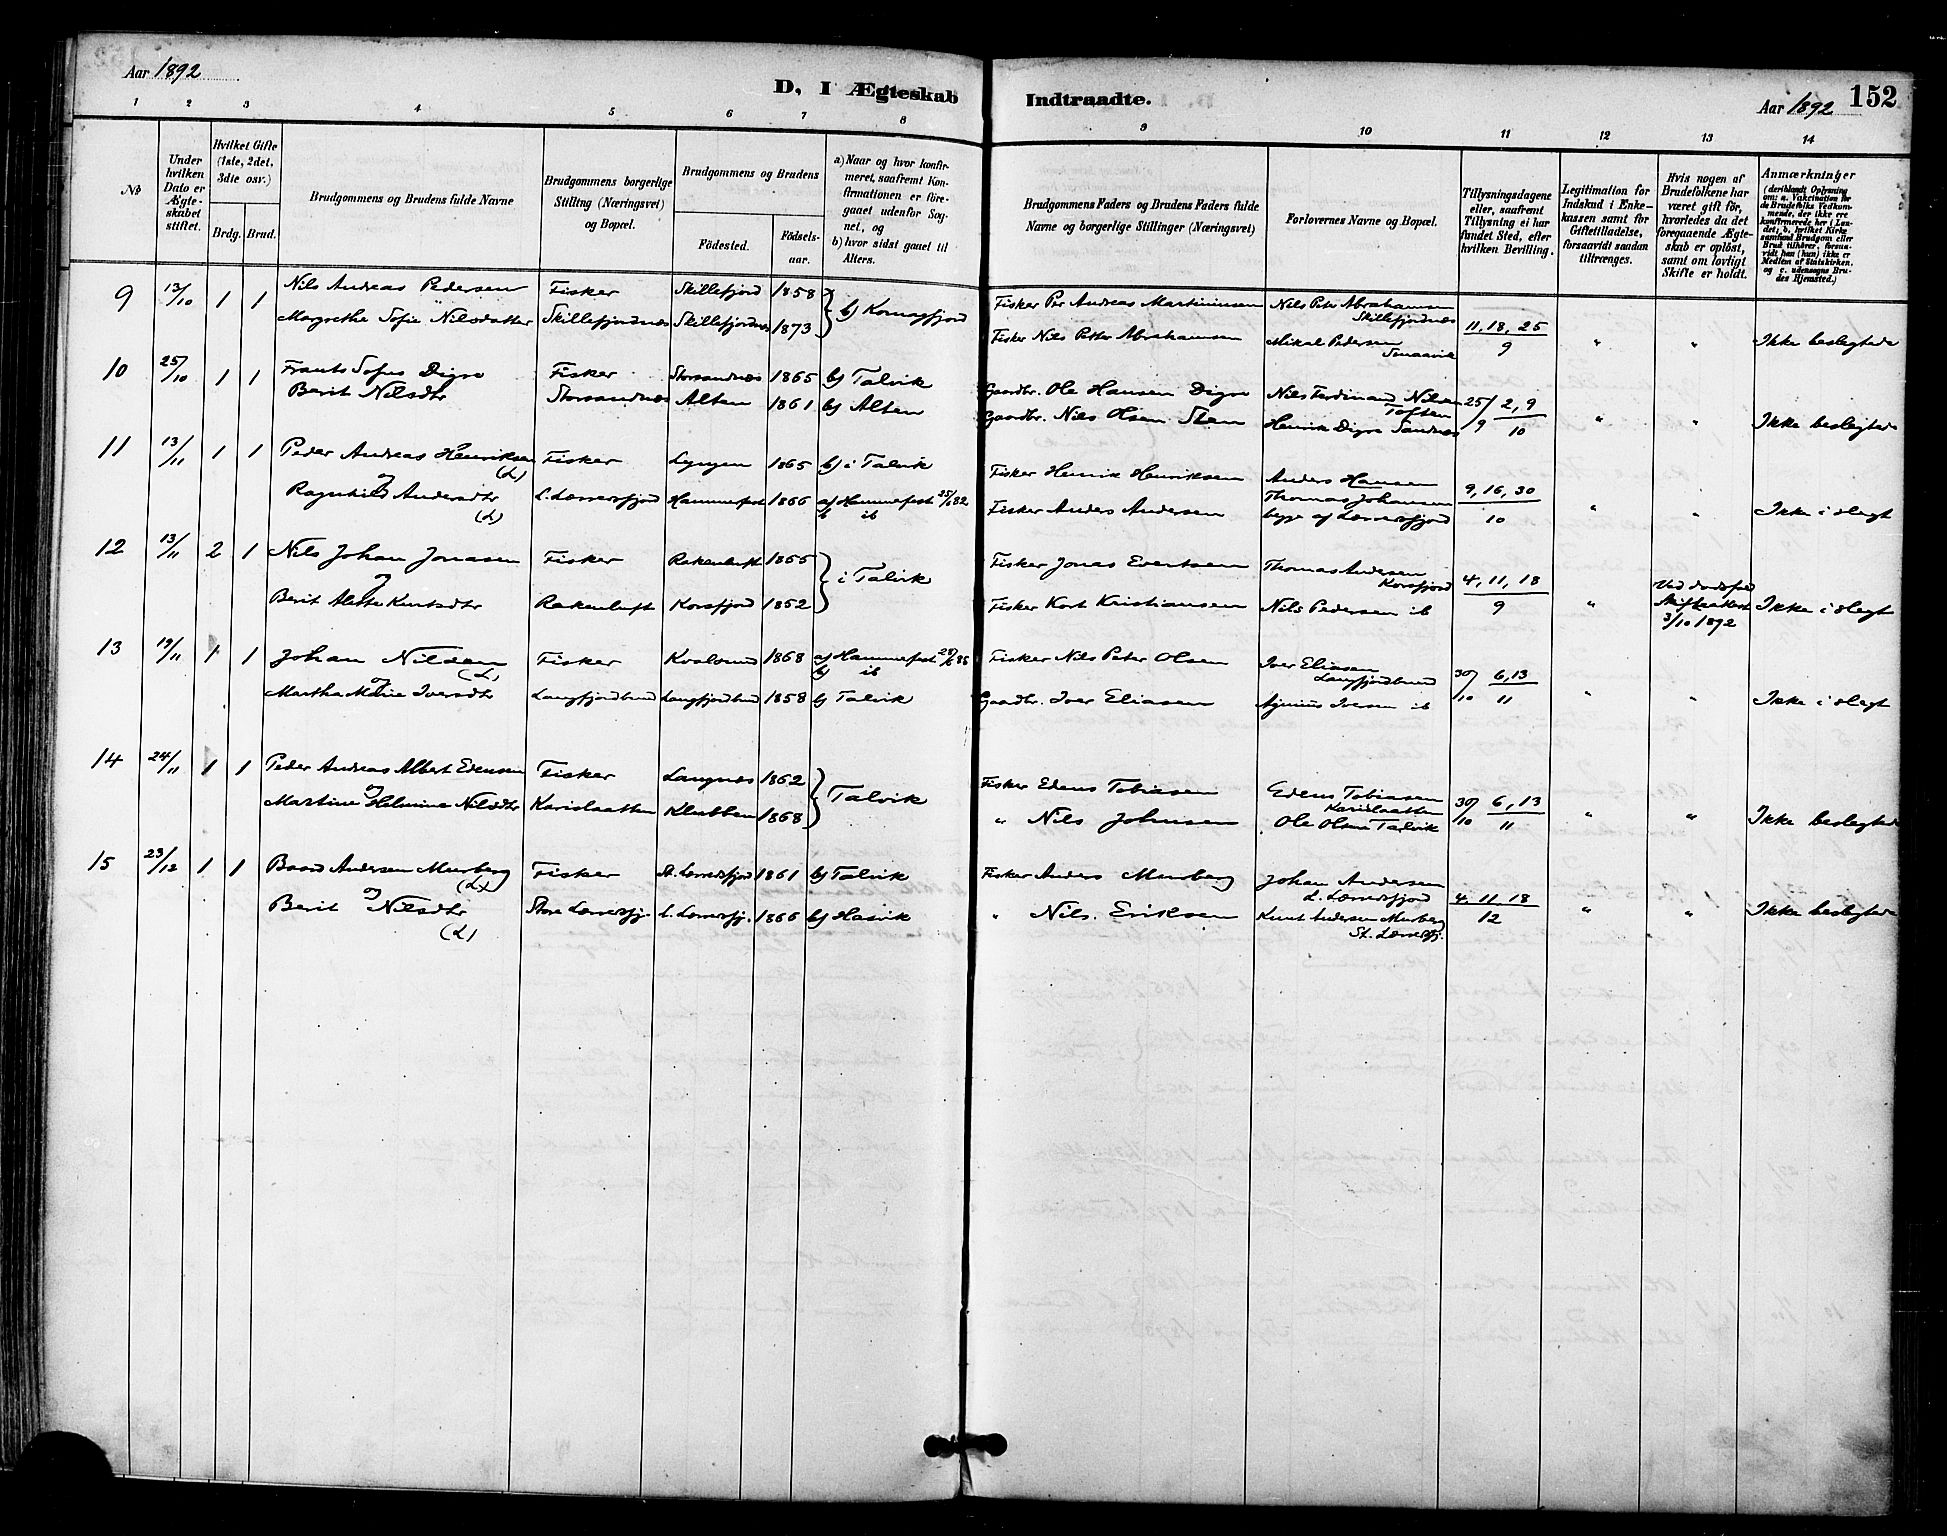 Aar 1892
D, I Ægteskab Indtraadte.
Aar 1892 152
1 2 3 4 5 6 7 8 9 10 11 12 13 14
No
Under hvilken Dato er Ægteskabet stiftet.
Hvilket Gifte (1ste, 2det, 3die osv.)
Brdg. Brud.
Brudgommens og Brudens fulde Navne
Brudgommens borgerlige Stilling (Næringsvei) og Bopæl.
Brudgommens og Brudens
Födested. Födsels-aar.
a) Naar og hvor konfirmeret, saafremt Konfirmationen er foregaaet udenfor Sognet, og
b) hvor sidst gaaet til Alters.
Brudgommens Faders og Brudens Faders fulde Navne og borgerlige Stillinger (Næringsvei)
Forlovernes Navne og Bopæl.
Tillysningsdagene eller, saafremt Tillysning ei har fundet Sted, efter hvilken Bevilling.
Legitimation for Indskud i Enkekassen samt for Giftetilladelse, forsaavidt saadan tiltrænges.
Hvis nogen af Brudefolkene har været gift för, hvorledes da det foregaaende Ægteskab er oplöst, samt om lovligt Skifte er holdt.
Anmærkninger
(deriblandt Oplysning om: a. Vakcination for de Brudefolks Vedkommende, der ikke ere konfirmerede her i Landet; b. hvilket Kirkesamfund Brudgom eller Brud tilhörer, forsaavidt han (hun) ikke er Medlem af Statskirken. og c. udensogns Brudes Hjemsted.)
9 13/10 1 1 Nils Andreas Pedersen Fisker Skillefjord 1858 b) Komagfjord Fisker Per Andreas Martinussen Nils Peter Abrahamsen Skillefjordnæs 11, 18, 25
Margrethe Sofie Nilsdatter Skillefjordnæs Skillefjordnæs 1873 Fisker Nils Petter Abrahamsen Mikal Pedersen 9 " " Ikke beslegtede
10 25/10 1 1 Frants Sofus Digre Fisker Storsandnæs 1865 b) Talvik Gaardbr. Ole Hansen Digre Nils Ferdinand Nilsen Toften 25/9 2, 9
Berit Nilsdtr Storsandnæs Alten 1861 b) Alten Gaardbr. Nils Olsen Sten Henrik Digre Sandnæs 10 " " Ikke beslegtede
11 13/11 1 1 Peder Andreas Henriksen (L) Fisker Lyngen 1865 b) i Talvik Fisker Henrik Henriksen Anders Hansen 9, 16, 30
og
Ragnhild Andersdtr (L) L. Lerresfjord Hammerfest 1866 a) Hammerfest 25/6 82 b ib Fisker Anders Andersen Thomas Johansen begge af Lerresfjord 10 " " Ikke i slegt
12 13/11 2 1 Nils Johan Jonasen Fisker Rakenluft 1855 i Talvik Fisker Jonas Evertsen Thomas Andersen Korsfjord 4, 11, 18
og
Berit Aletta Kurtsdtr Rakenluft Korsfjord 1852 Fisker Kort Kristiansen Nils Pedersen ib 9 " Ved dødsfald Skifteattest 3/10 1892 Ikke i slegt
13 19/11 1 1 Johan Nilsen (L) Fisker Kvalsund 1868 a) Hammerfest b) ib Fisker Nils Peter Olsen Iver Eliasen Langfjordbund 30/10 6, 13
og
Martha Marie Iversdtr Langfjordbund Langfjordbund 1858 b) Talvik Gaardbr. Iver Eliasen Iversen ib 11 " " Ikke i slegt
14 24/11 1 1 Peder Andreas Albert Edensen Fisker Langnæs 1862 Talvik Fisker Edens Tobiasen Edens Tobiasen 30/10 6, 13
og
Martine Helmine Nilsdtr Karislaatten Klubben 1868 " Nils Johnsen Ole Olsen Talvik 11 " " Ikke beslegtede
15 23/12 1 1 Baard Andersen Murberg (L) Fisker St. Lerresfjord 1861 b) Talvik Fisker Anders Murberg Johan Andersen L. Lerresfjord 4, 11, 18
og
Berit Nilsdtr (L) Store Lerresfj. L. Lerresfj. 1866 b) Hasvik " Nils Eriksen Knut Andersen Murberg St. Lerresfj. 12 " " Ikke beslegtede